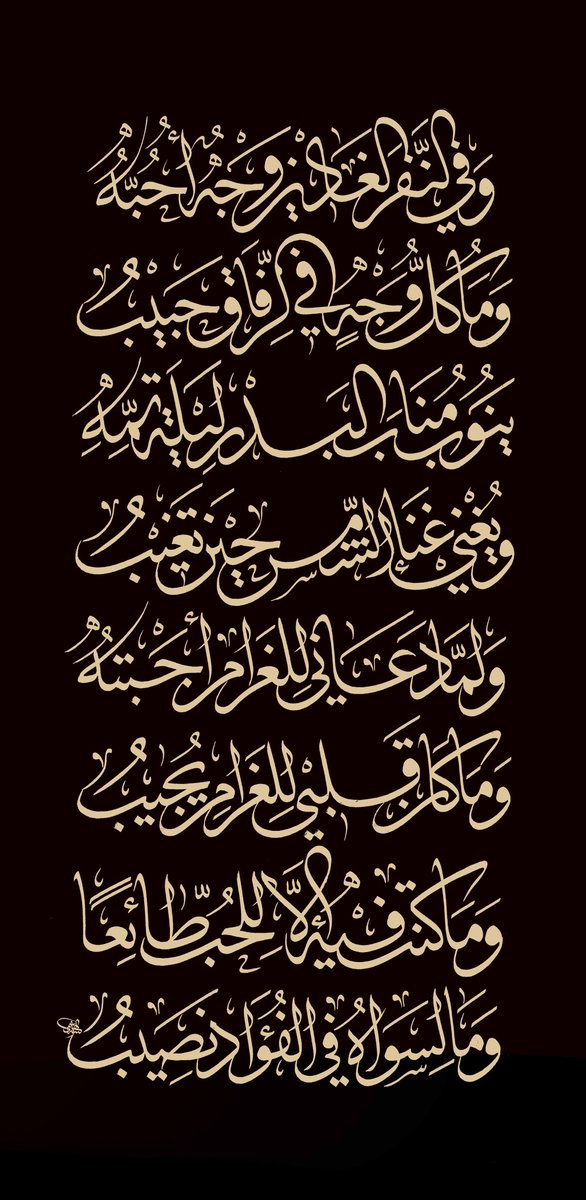 وَفِي النَّفَرِ الغَادِينَ وَجْهٌ أُحِبُّهُ
وَمَا كُلُّ وَجْهٍ فِي الرِّفَاقِ حَبِيبُ
يَنُوبُ مَنَابَ البَدْرِ لَيْلَةَ تِمِّهِ
وَيُغْنِي غَنَاءَ الشَّمْسِ حِينَ تَغِيبُ
وَلَمَّا دَعَانِي لِلغَرَامِ أَجَبْتُهُ
وَمَا كَانَ قَلْبِي لِلغَرَامِ يُجِيبُ
وَمَا كُنْتُ فِيهِ إِلَّا لِلحُبِّ طَائِعًا
وَمَا لِسِوَاهُ فِي الفُؤَادِ نَصِيبُ